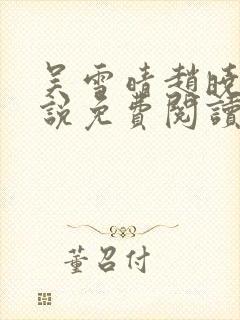 吴雪晴趙曉
說免費閱讀
董召付